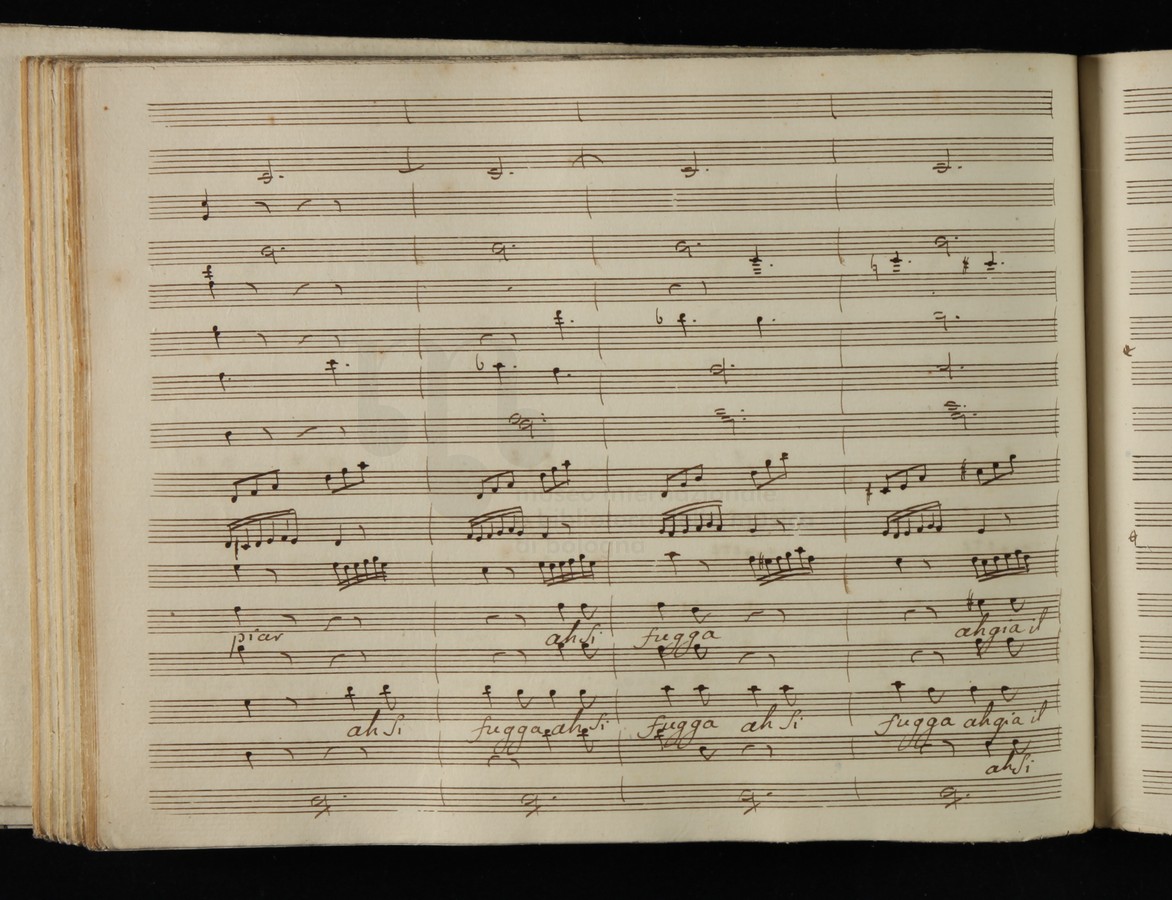 piar ah Si fugga ah gia il
ah Si fugga ah Si fugga ah Si fugga ah gia il
ah Si
museo internazionale
e biblioteca della musica
di bologna